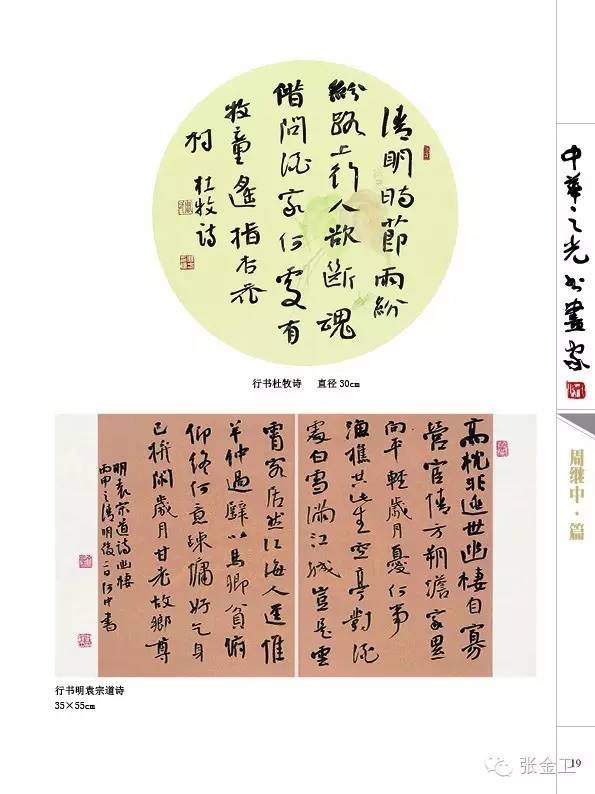 清明時節雨紛
紛路上行人欲斷魂
借問酒家何處有
牧童遙指杏花
村 杜牧诗
行书杜牧诗 直径30cm
高枕非逃世幽棲自寡
營官情方朔澹家累
向平輕歲月憂何事
漁樵共此生空亭對酒
處白雪滿江城豈是雲
霄客居然江海人逕惟
羊仲過壁以馬卿貧俯
仰終何意疎慵好乞身
已拚閑歲月甘老故鄉蓴
明袁宗道诗幽棲
丙申之清明後二日中書
行书明袁宗道诗
35×55cm
中華之光书畫家
周继中·篇
19
张金卫